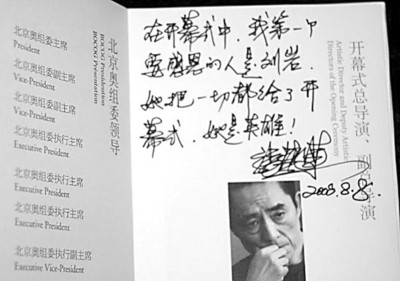 北京奥组委领导
BOCOG Presidential
BOCOG Presentation
北京奥组委主席
President
北京奥组委副主席
Vice-President
北京奥组委副主席
Vice-President
北京奥组委执行主席
Executive President
北京奥组委执行主席
Executive President
北京奥组委执行主席
Executive President
北京奥组委执行副主席
Executive Vice-President
在开幕式中，我第一个
要感恩的人是刘岩，
她把一切都给了开
幕式，她是英雄！
张艺谋
2008.8.8.
开幕式总导演、副总导演
Artistic Director and Deputy Artistic
Directors of the Opening Ceremony